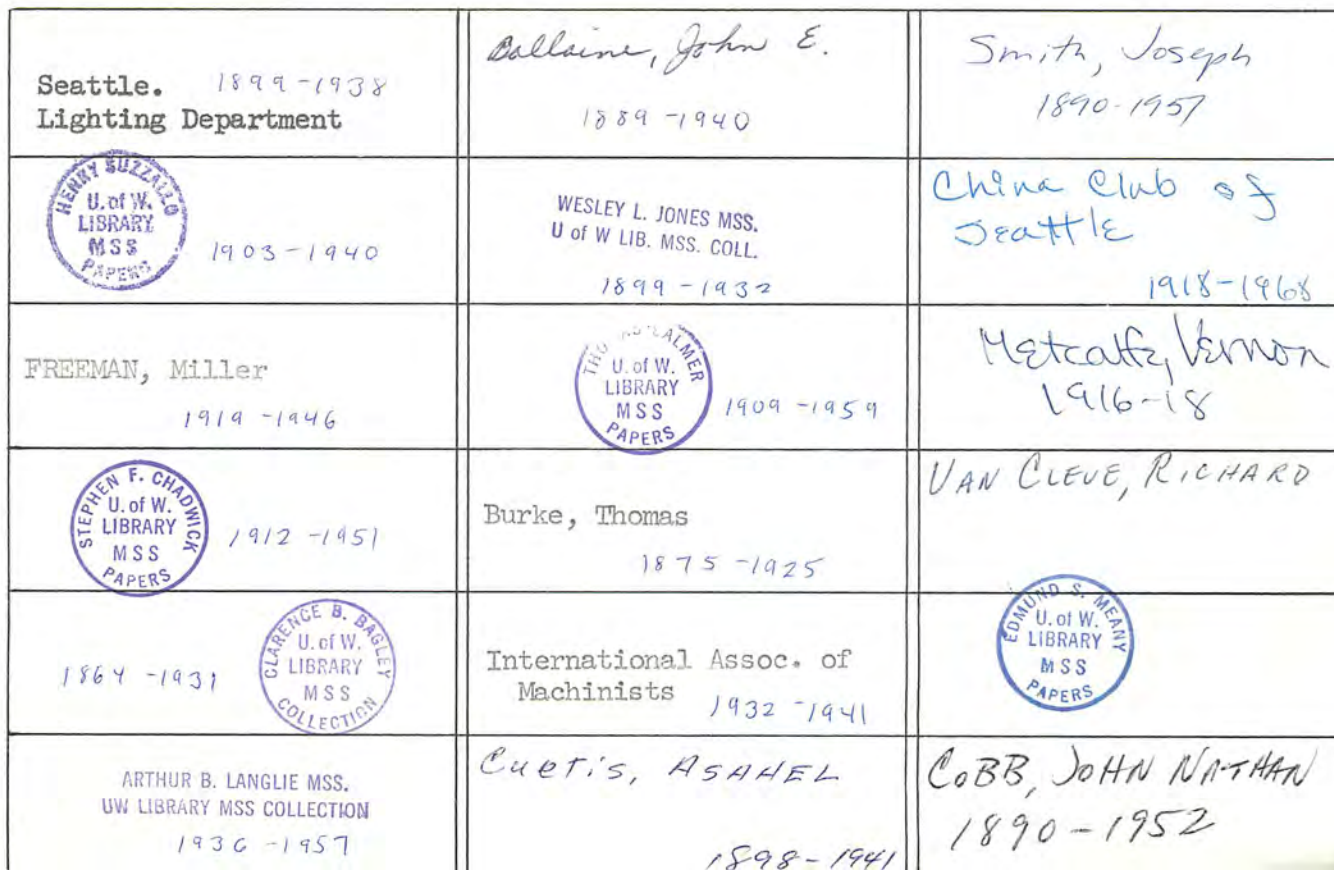 Seattle. 1899-1938
Lighting Department
Ballaine, John E.
1889-1940
Smith, Joseph
1890-1957
HENRY SUZZALLO
U. of W.
LIBRARY
MSS
PAPERS
1903-1940
WESLEY L. JONES MSS.
U of W LIB. MSS. COLL.
1899-1932
China Club of
Seattle
1918-1968
FREEMAN, Miller
1919-1946
U. of W.
LIBRARY
MSS
PAPERS
1909-1959
Metcalfe, Vernon
1916-18
STEPHEN F. CHADWICK
U. of W.
LIBRARY
MSS
PAPERS
1912-1951
Burke, Thomas
1875-1925
VAN CLEVE, RICHARD
1864-1931
CLARENCE B. BAGLEY
U. of W.
LIBRARY
MSS
COLLECTION
International Assoc. of
Machinists 1932-1941
EDMUND S. MEANY
U. of W.
LIBRARY
MSS
PAPERS
ARTHUR B. LANGLIE MSS.
UW LIBRARY MSS COLLECTION
1936-1957
Curtis, ASAHEL
1898-1941
COBB, JOHN NATHAN
1890-1952